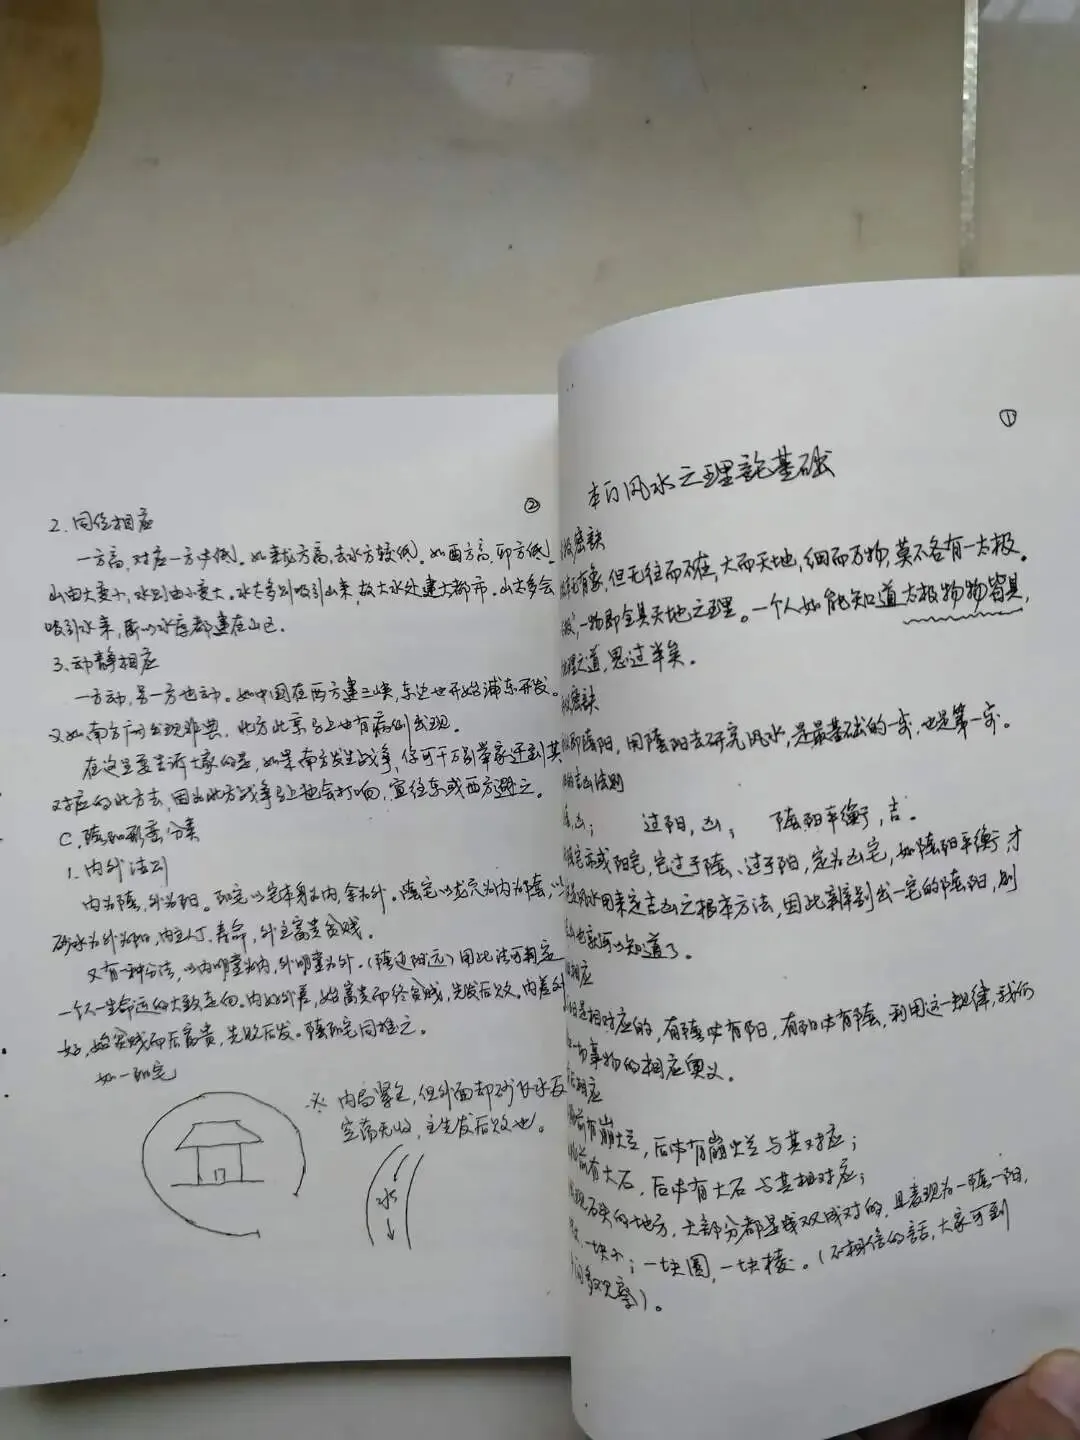 ①
风水之理論基础
密訣
有象,但无往而不在,大而天地,细而万物,莫不各有一太极。
一物即全具天地之理。一个人如能知道太极物物皆具,
之道,思过半矣。
密訣
即陰阳,用陰阳去研究风水,是最基础的一步,也是第一步。
吉凶法则
凶; 过阳,凶; 陰阳平衡,吉。
宅或阳宅,它过于陰、过于阳,定为凶宅,如陰阳平衡才
用来定吉凶之根本方法,因此辨别出一宅的陰阳,则
也就可以知道了。
相应
是相对应的,有陰必有阳,有阳必有陰,利用这一规律,我们
一切事物的相应奥义。
相应
前有崩岩,后必有崩岩与其对应;
前有大石,后必有大石与其相对应;
石头的地方,大部分都是成双成对的,且表现为一陰一阳,
一块小;一块圆,一块棱。(不相信的話,大家可到
多观察)。
②
2.同位相应
一方高,对应一方必低。如来龙方高,去水方较低。如西方高,卯方低。
山由大变小,水则由小变大。水太多则吸引山来,故大水处建大都市。山太多会
吸引水来,所以水库都建在山区。
3.动静相应
一方动,另一方也动。如中国在西方建三峡,东边也开始浦东开发。
又如南方广州出现非典,北方北京马上也有病例出现。
在这里要告诉大家的是,如果南方发生战争,你可千万别举家迁到其
对应的北方去,因为北方战争马上也会打响,宜往东或西方避之。
C.陰阳形态分类
1.内外法则
内为陰,外为阳。阳宅以宅本身为内,余为外。陰宅以龙穴为内为陰,以
砂水为外为阳,内主人丁、寿命,外主富贵贫贱。
又有一种分法,以内明堂为内,外明堂为外。(陰近阳远)用此法可判定
一个人一生命运的大致走向。内好外差,始富贵而终贫贱,先发后败。内差外
好,始贫贱而后富贵,先败后发。陰阳宅同推之。
如一阳宅
※ 内局紧包,但外面却砂飞水反
空荡无收,主先发后败也。
水